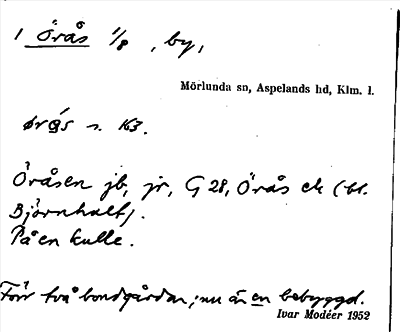 1 Örås 1/8, by,
Mörlunda sn, Aspelands hd, Klm. l.
ørås s. 163.
Öråsen jb, jr, G 28, Örås ek (bl.
Björnhalt).
På en kulle.
Förr två bondgårdar; nu är en bebyggd.
Ivar Modéer 1952